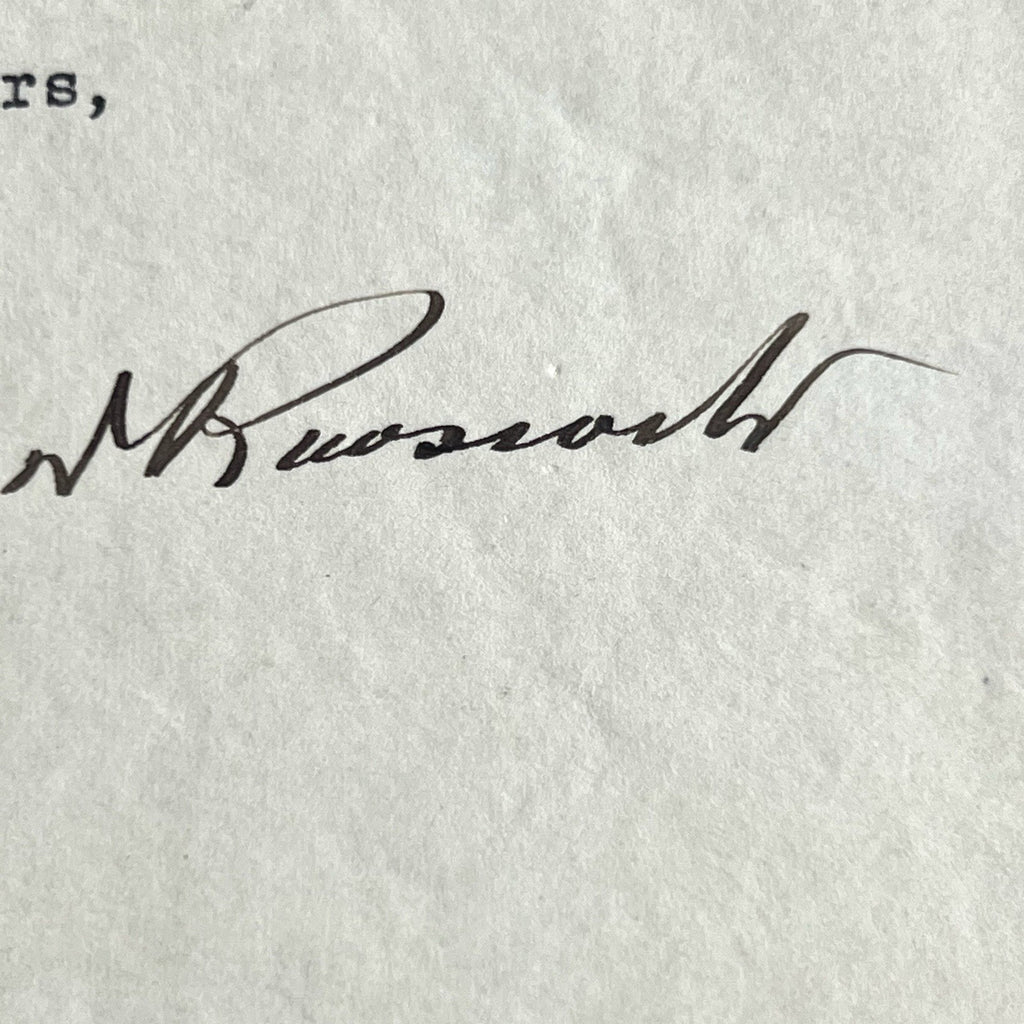 rs,
Roosevelt